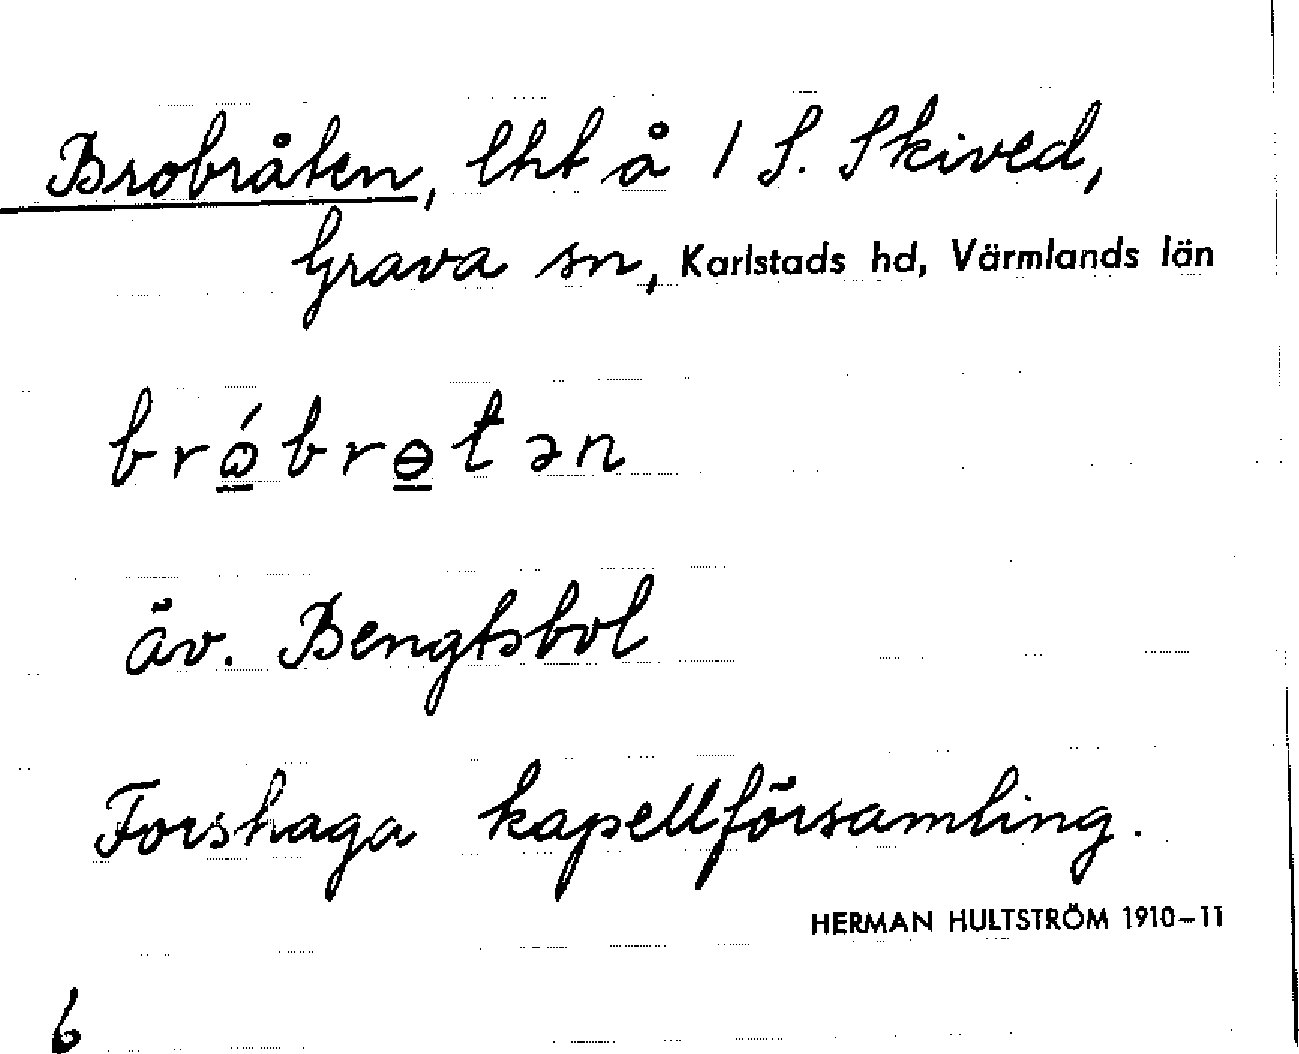 Brobråten, lht å 1 S. Skived,
Grava sn, Karlstads hd, Värmlands län
brǫ́brɵ̠tən
äv. Bengtsbol
Forshaga kapellförsamling.
HERMAN HULTSTRÖM 1910-11
6